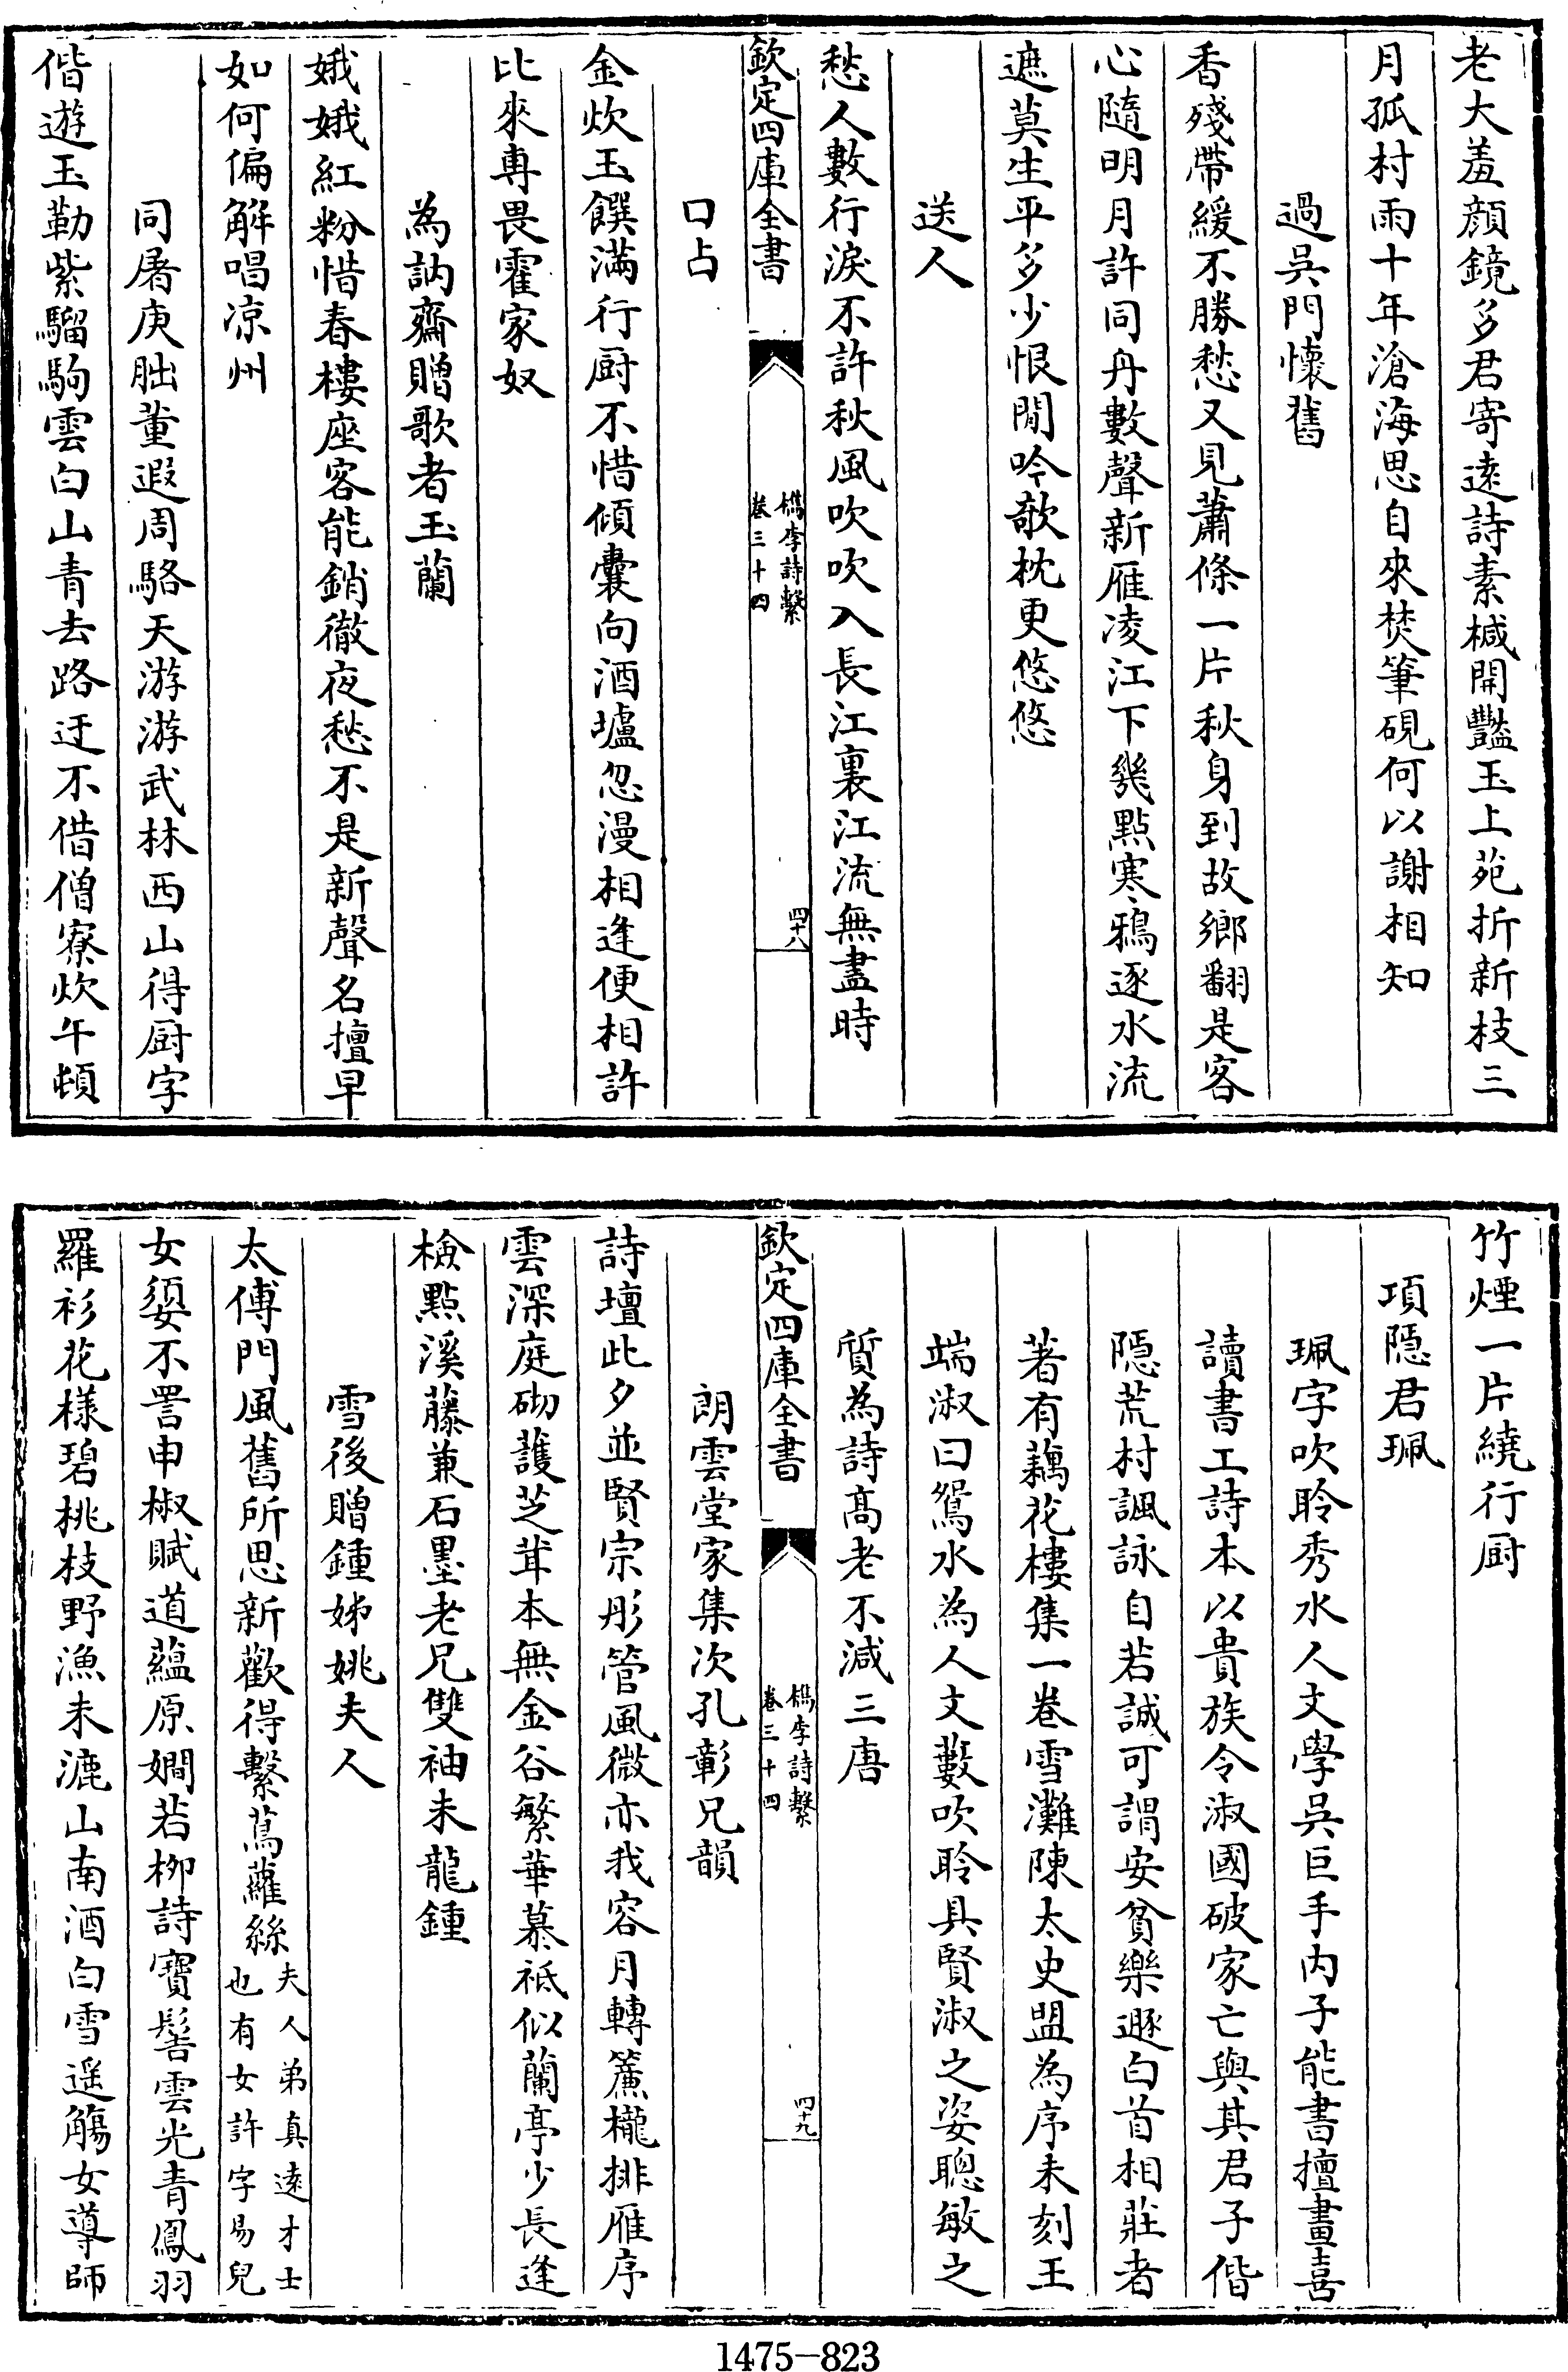 老大羞顔鏡多君寄逺詩素椷開豔玉上苑折新枝三
月孤村雨十年滄海思自來焚筆硯何以謝相知
過吳門懷舊
香殘帶緩不勝愁又見蕭條一片秋身到故鄉翻是客
心隨明月許同舟數聲新雁凌江下幾點寒鴉逐水流
遮莫生平多少恨閒吟欹枕更悠悠
送人
愁人數行淚不許秋風吹吹入長江裏江流無盡時
欽定四庫全書
檇李詩繫
卷三十四
四十八
口占
金炊玉饌滿行厨不惜傾囊向酒壚忽漫相逢便相許
比來専畏霍家奴
為訥齋贈歌者玉蘭
娥娥紅粉惜春樓座客能銷徹夜愁不是新聲名擅早
如何偏解唱凉州
同屠庚朏董遐周駱天游游武林西山得厨字
偕遊玉勒紫騮駒雲白山青去路迂不借僧寮炊午頓
竹煙一片繞行厨
項隱君珮
珮字吹聆秀水人文學吳巨手内子能書擅畫喜
讀書工詩本以貴族令淑國破家亡與其君子偕
隱荒村諷詠自若誠可謂安貧樂遯白首相莊者
著有藕花樓集一卷雪灘陳太史盟為序未刻王
端淑曰鴛水為人文藪吹聆具賢淑之姿聰敏之
質為詩髙老不減三唐
欽定四庫全書
檇李詩繫
卷三十四
四十九
朗雲堂家集次孔彰兄韻
詩壇此夕並賢宗彤管風微亦我容月轉簾櫳排雁序
雲深庭砌護芝茸本無金谷繁華慕祗似蘭亭少長逢
檢點溪藤兼石墨老兄雙袖未龍鍾
雪後贈鍾姊姚夫人
太傅門風舊所思新歡得繫蔦蘿絲夫人弟真逺才士
也有女許字易兒
女嬃不詈申椒賦道蘊原嫺若栁詩寶髻雲光青鳳羽
羅衫花樣碧桃枝野漁未漉山南酒白雪遥觴女導師
1475-823